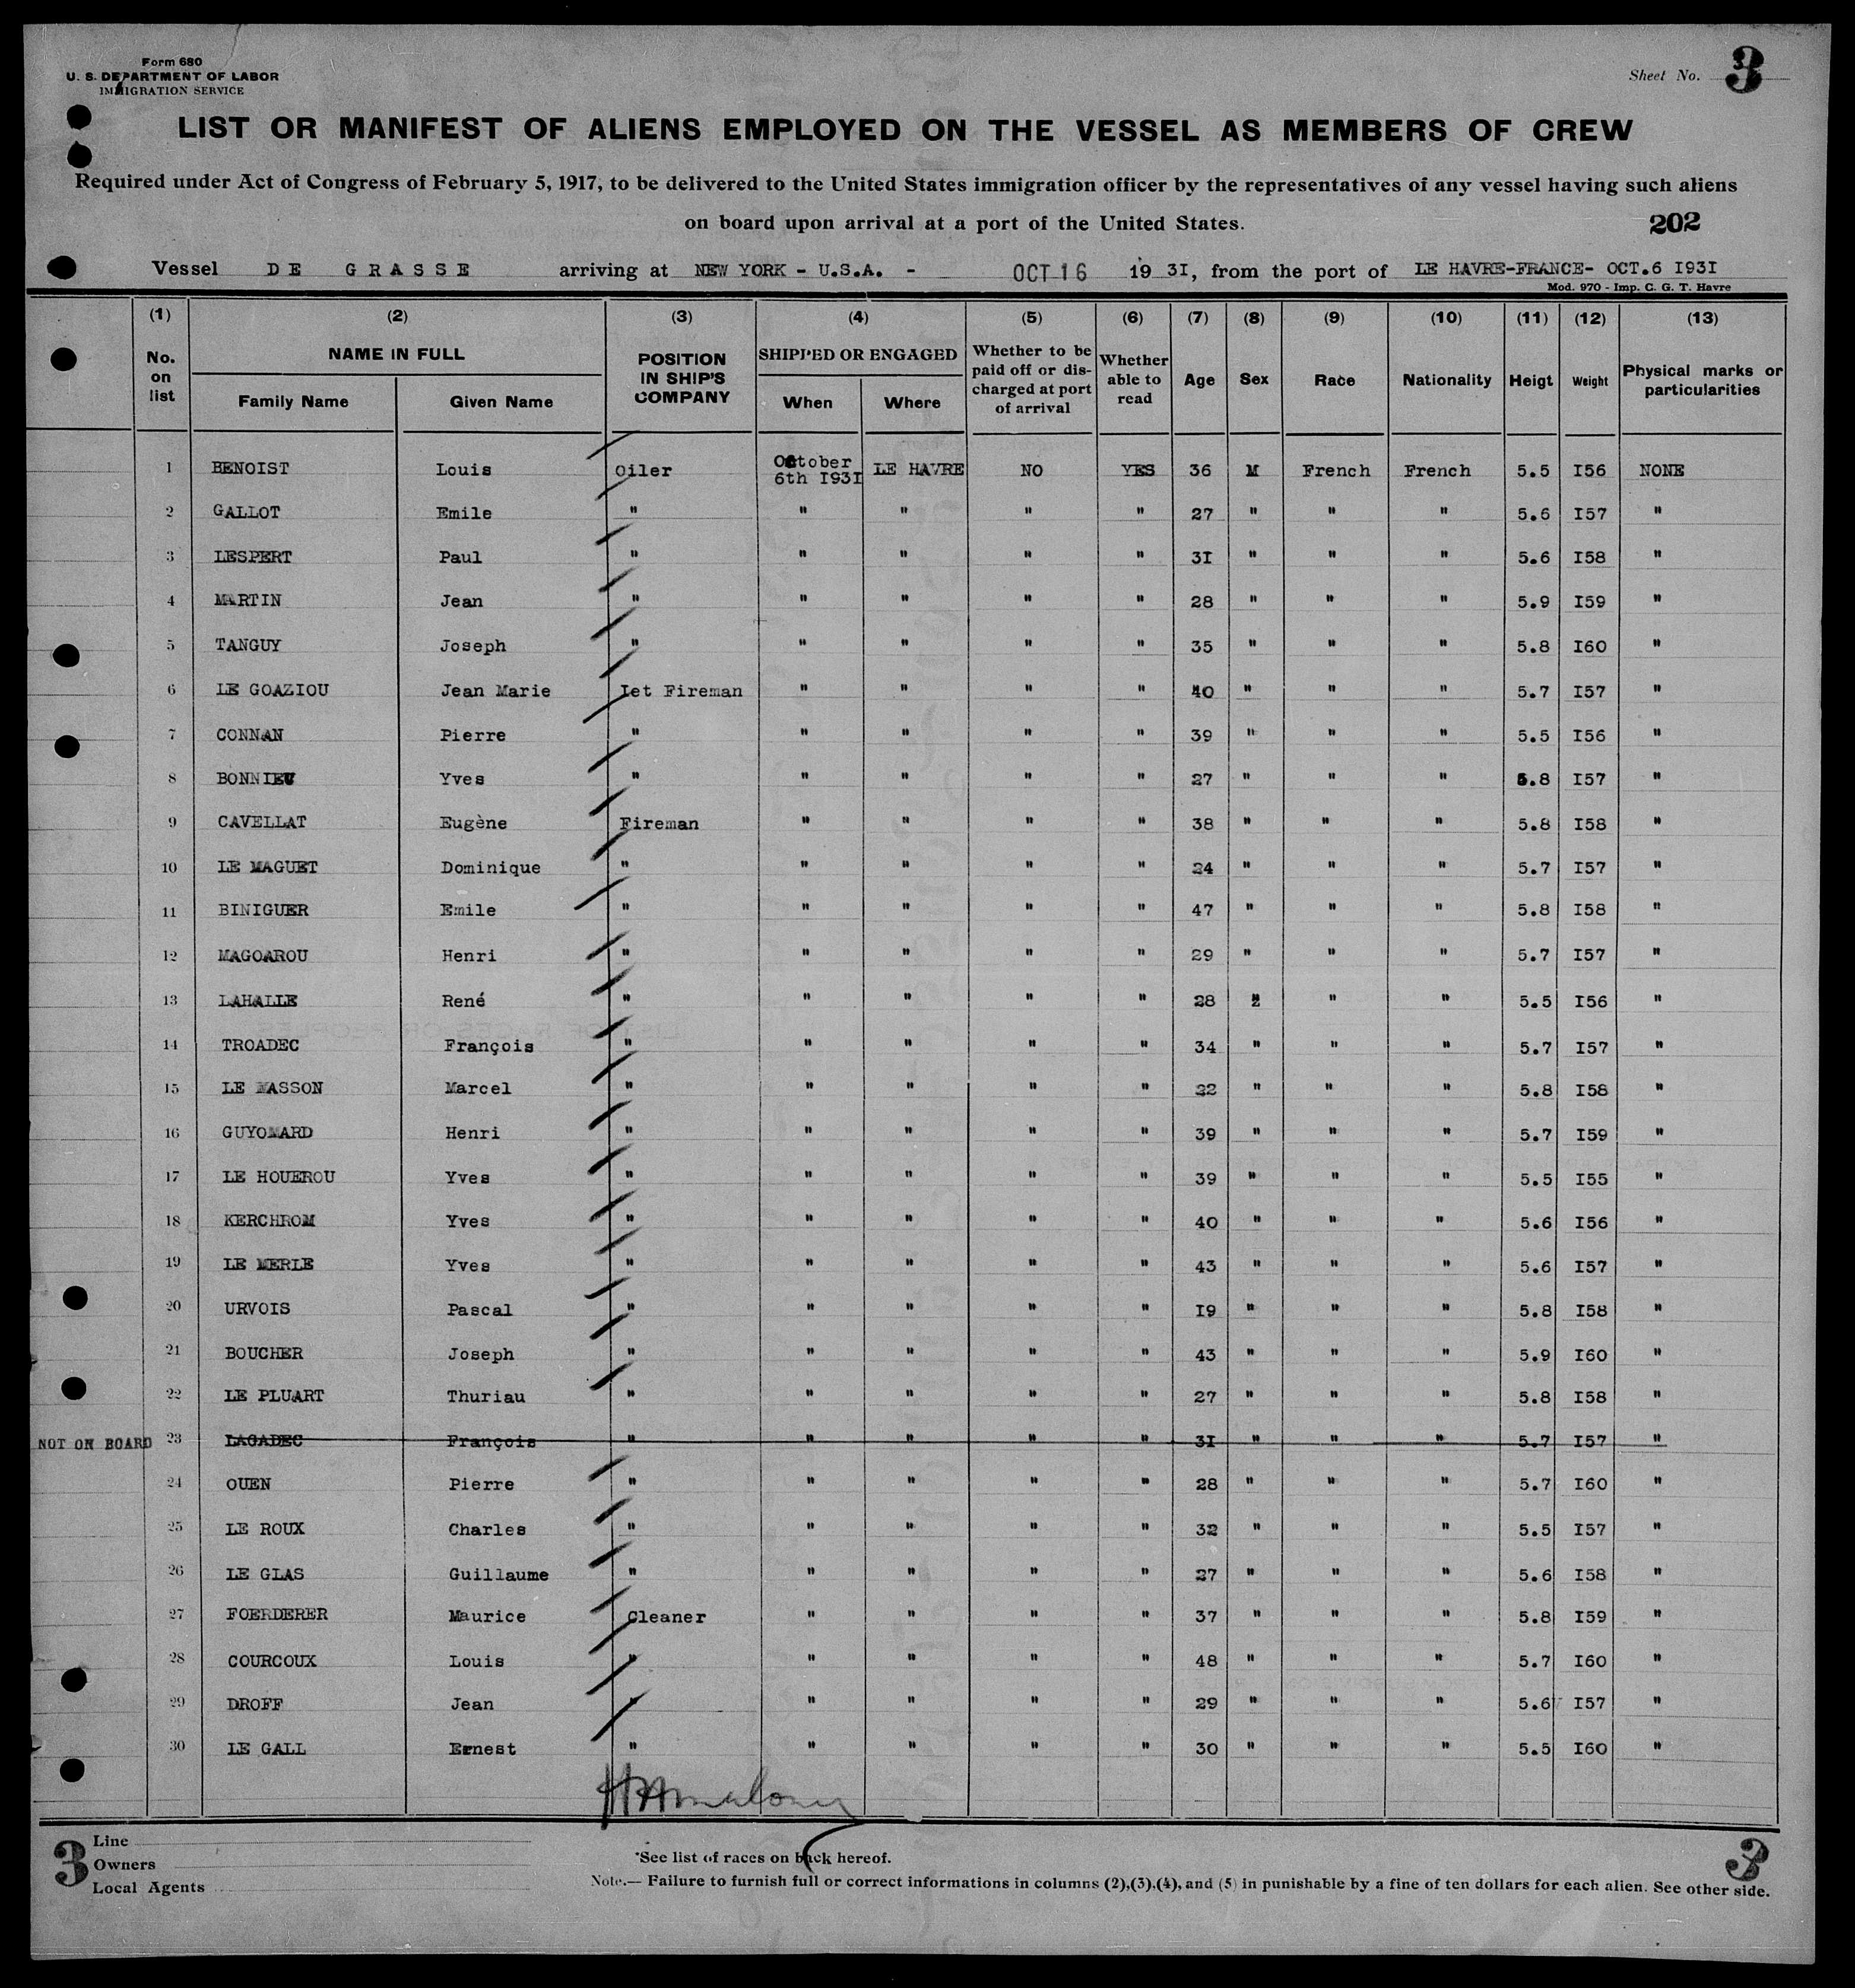 Form 680
U. S. DEPARTMENT OF LABOR
IMMIGRATION SERVICE
Sheet No. 3
LIST OR MANIFEST OF ALIENS EMPLOYED ON THE VESSEL AS MEMBERS OF CREW
Required under Act of Congress of February 5, 1917, to be delivered to the United States immigration officer by the representatives of any vessel having such aliens
on board upon arrival at a port of the United States.
202
Vessel DE GRASSE arriving at NEW YORK - U.S.A. - OCT 16 19 3I, from the port of LE HAVRE-FRANCE- OCT.6 I93I
Mod. 970 - Imp. C. G. T. Havre
(1) (2) (3) (4) (5) (6) (7) (8) (9) (10) (11) (12) (13)
No. on list NAME IN FULL Family Name Given Name POSITION IN SHIP'S COMPANY SHIPPED OR ENGAGED When Where Whether to be paid off or discharged at port of arrival Whether able to read Age Sex Race Nationality Heigt Weight Physical marks or particularities
1 BENOIST Louis Oiler October 6th I93I LE HAVRE NO YES 36 M French French 5.5 I56 NONE
2 GALLOT Emile " " " " " 27 " " " 5.6 I57 "
3 LESPERT Paul " " " " " 3I " " " 5.6 I58 "
4 MARTIN Jean " " " " " 28 " " " 5.9 I59 "
5 TANGUY Joseph " " " " " 35 " " " 5.8 I60 "
6 LE GOAZIOU Jean Marie Iet Fireman " " " " 40 " " " 5.7 I57 "
7 CONNAN Pierre " " " " " 39 " " " 5.5 I56 "
8 BONNIEU Yves " " " " " 27 " " " 5.8 I57 "
9 CAVELLAT Eugène Fireman " " " " 38 " " " 5.8 I58 "
10 LE MAGUET Dominique " " " " " 24 " " " 5.7 I57 "
11 BINIGUER Emile " " " " " 47 " " " 5.8 I58 "
12 MAGOAROU Henri " " " " " 29 " " " 5.7 I57 "
13 LAHALLE René " " " " " 28 " " 5.5 I56 "
14 TROADEC François " " " " " 34 " " " 5.7 I57 "
15 LE MASSON Marcel " " " " " 22 " " " 5.8 I58 "
16 GUYOMARD Henri " " " " " 39 " " " 5.7 I59 "
17 LE HOUEROU Yves " " " " " 39 " " " 5.5 I55 "
18 KERCHROM Yves " " " " " 40 " " " 5.6 I56 "
19 LE MERLE Yves " " " " " 43 " " " 5.6 I57 "
20 URVOIS Pascal " " " " " I9 " " " 5.8 I58 "
21 BOUCHER Joseph " " " " " 43 " " " 5.9 I60 "
22 LE PLUART Thuriau " " " " " 27 " " " 5.8 I58 "
NOT ON BOARD 23 LAGADEC François " " " " " 3I " " " 5.7 I57 "
24 OUEN Pierre " " " " " 28 " " " 5.7 I60 "
25 LE ROUX Charles " " " " " 32 " " " 5.5 I57 "
26 LE GLAS Guillaume " " " " " 27 " " " 5.6 I58 "
27 FOERDERER Maurice Cleaner " " " " 37 " " " 5.8 I59 "
28 COURCOUX Louis " " " " " 48 " " " 5.7 I60 "
29 DROFF Jean " " " " " 29 " " " 5.6 I57 "
30 LE GALL Ernest " " " " " 30 " " " 5.5 I60 "
3
Line
Owners
Local Agents
*See list of races on back hereof.
Note.— Failure to furnish full or correct informations in columns (2),(3),(4), and (5) in punishable by a fine of ten dollars for each alien. See other side.
3